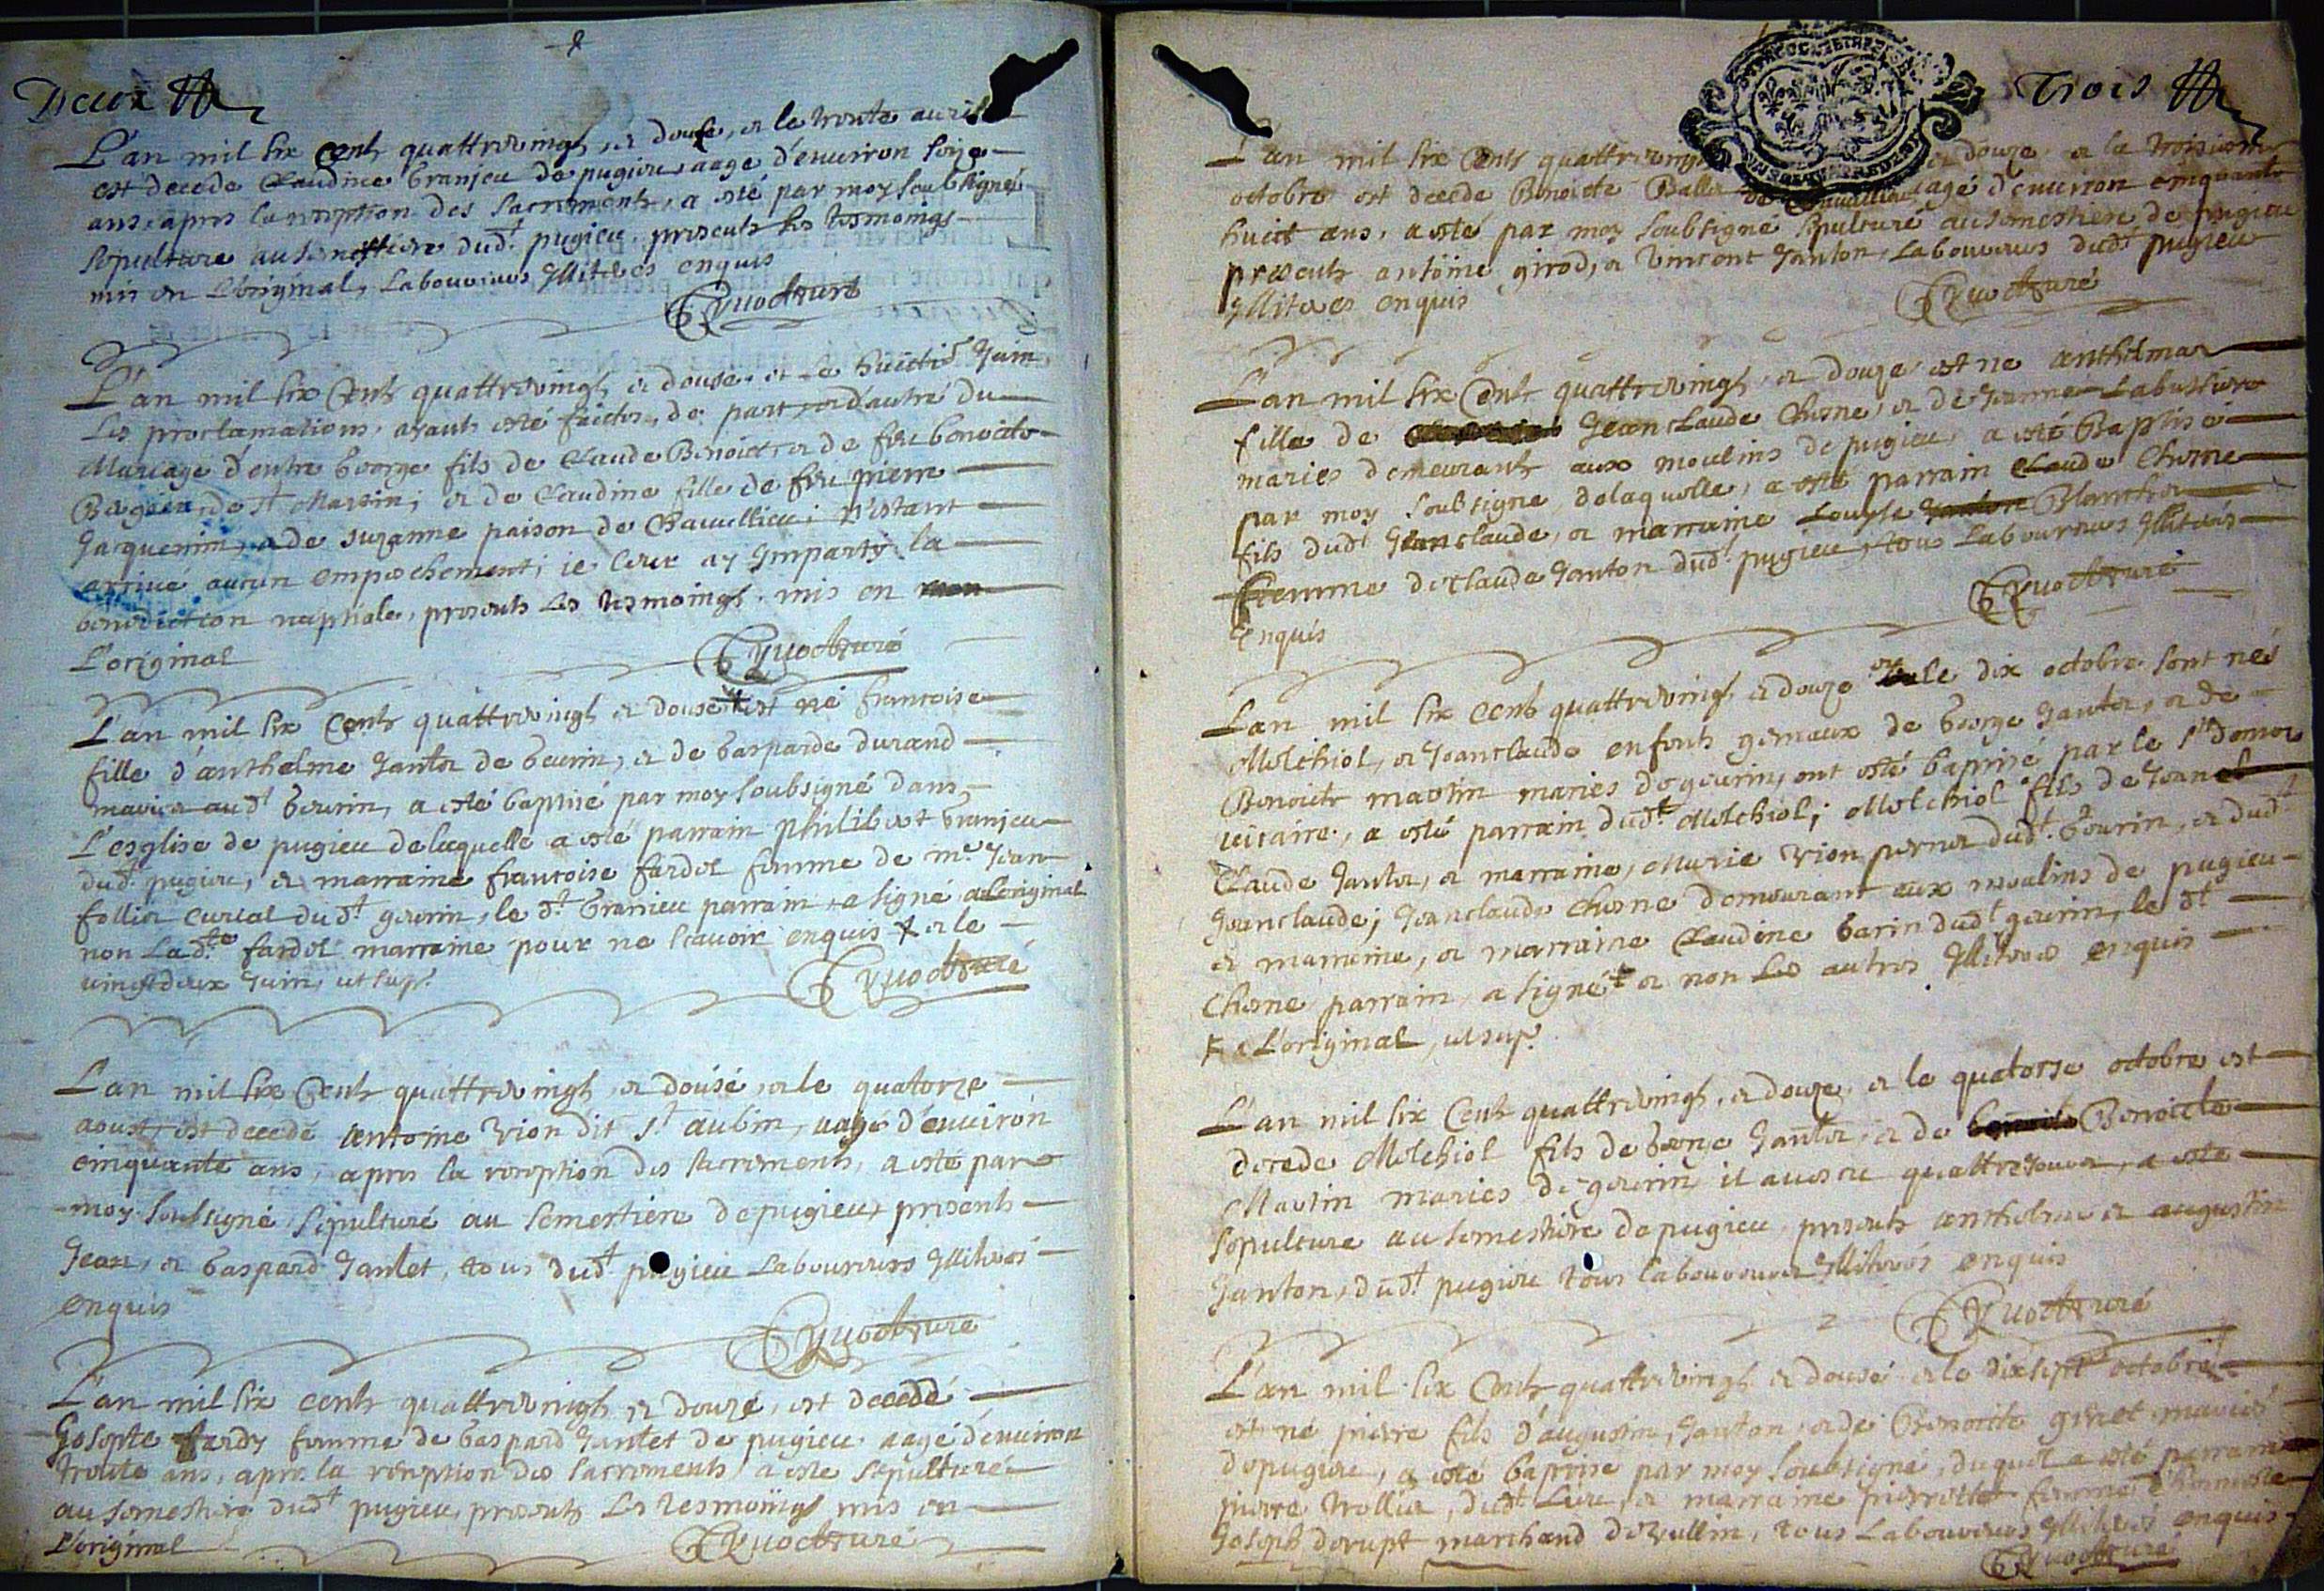 Deux
L'an mil six Cents quattrevingts et douse, et le trente auril
est decede Claudine Granjeu de pugieu, aagé d'enuiron seize
ans, apres la reception des sacrements, a esté par moy soubsigné
sepulture au semestiere dud.t pugieu, presents les tesmoings
mis en L'original, Laboureurs Illiteres enquis
L'an mil six Cents quattrevingts et douse, et le huicti.e Juin
Les proclamations, ayants esté faictes, de part et d'autre du
Mariage d'entre George fils de Claude Benoict et de feu benoicte
de St Martin; et de Claudine fille de feu pierre
Jacquemin, et de suzanne paison de Chauillieu; n'estant
arriué aucun empeschement; ie leur ay Imparty la
benediction nuptiale, presents Les tesmoings mis en
L'original
L'an mil six Cents quattrevingts et douse est né francoise
fille d'anthelme Janter de Geurin, et de Gasparde durand
mariés aud.t Geurin, a esté baptisé par moy soubsigné dans
L'esglise de pugieu delaquelle a esté parrain philibert Granjeu
dud.t pugieu, et marraine francoise fardel femme de m.e Jean
follier curial dud.t geurin, le d.t Granieu parrain a signé a L'original
non Lad.te fardel marraine pour ne scauoir enquis et le
vingtdeux Juin, ut sup.
L'an mil six Cents quattrevingts et dousé, et le quatorze
aoust, est decedé Antoine Vion dit s.t aubin, aagé d'enuiron
cinquante ans, apres la reception des sacrements, a esté par
moy soubsigné sepulturé au semestiere de pugieu, presents
Jean, et Gaspard Janlet, tous dud.t pugieu Laboureurs Illiterés
enquis
L'an mil six cents quattrevingts et douzé, est decedé
Josepte fardy femme de Gaspard Jantet de pugieu aagé d'enuiron
trente ans, apres la reception des sacrements a este sepulturé
au semestiere dud.t pugieu, presents Les tesmoings mis en
L'original
Trois
L'an mil six Cents quattrevingts et douze et la troisieme
octobre est decede Benoicte agé d'enuiron cinquante
huict ans, a esté par moy soubsigné sepulturé au semestiere de pugieu
presents antoine girod, et Vincent Janton, Laboureurs dud.t pugieu
Illiteres enquis
L'an mil six Cents quattrevingts, et douze, est ne anthelmar
fille de Jeanclaude Chesne, et de Jeanne Labussiere
maries demeurants aux moulins de pugieu, a esté Baptisé
par moy soubsigne, delaquelle, a esté parrain Claude Chesne
fils dud.t Jeanclaude, et marraine Louyse Blanchet
femme de claude Janton dud.t pugieu, tous Laboureurs Illiterés
Enquis
L'an mil six Cents quattrevingts et douze et le dix octobre sont nés
Melchiol, et Jeanclaude enfents gemeaux de George Janter, et de
Benoicte martin mariés de geurin, ont esté baptisé par le s.r
uicaire, a esté parrain dud.t Melchiol; Melchiol fils de Jean
Claude Janter, et marraine, Marie Vion dud.t Geurin, et dud.t
Jeanclaude; Jeanclaude Chesne demeurant aux moulins de pugieu
et marraine, et marraine Claudine Garin dud.t geurin, le d.t
Chesne parrain, a signé et non Les autres Illiteres enquis
a L'original, ut sup.
L'an mil six Cents quattrevingts, et douze, et le quatorse octobre est
decede Melchiol fils de George Janter, et de Benoicte
Martin maries de geurin, il quattre jours, a esté
sepulture au semestiere de pugieu presents anthelme et augustin
Janton, dud.t pugieu tous laboureurs Illiterés enquis
L'an mil six Cents quattrevingts et dousé et le dixsept octobre
est né pierre fils d'augustin, Janton, et de Benoicte ginet mariés
de pugieu, a esté baptise par moy soubsigné, duquel a esté parrain
pierre trollier, dud.t Lieu, et marraine pierrette femme d'honneste
Joseph derupt marchand de vullin, tous Laboureurs Illiterés enquis